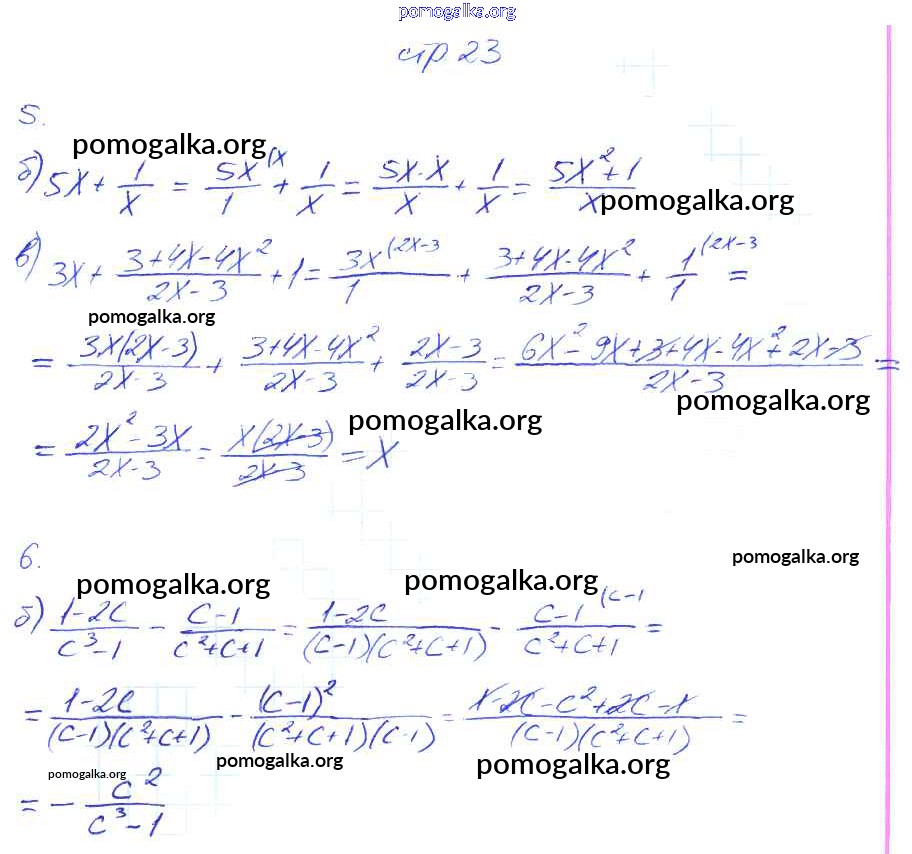 pomogalka.org
стр 23
5.
pomogalka.org
б) 5x + 1/x = 5x/1 (x + 1/x = 5x·x/x + 1/x = 5x²+1/x
pomogalka.org
в) 3x + 3+4x-4x²/2x-3 + 1 = 3x/1 (2x-3 + 3+4x-4x²/2x-3 + 1/1 (2x-3 =
pomogalka.org
= 3x(2x-3)/2x-3 + 3+4x-4x²/2x-3 + 2x-3/2x-3 = 6x²-9x+3+4x-4x²+2x-3/2x-3 =
pomogalka.org
pomogalka.org
= 2x²-3x/2x-3 = x(2x-3)/2x-3 = x
6.
pomogalka.org
pomogalka.org
pomogalka.org
б) 1-2c/c³-1 - c-1/c²+c+1 = 1-2c/(c-1)(c²+c+1) - c-1/c²+c+1 (c-1 =
= 1-2c/(c-1)(c²+c+1) - (c-1)²/(c²+c+1)(c-1) = 1-2c-c²+2c-1/(c-1)(c²+c+1) =
pomogalka.org
pomogalka.org
pomogalka.org
= - c²/c³-1